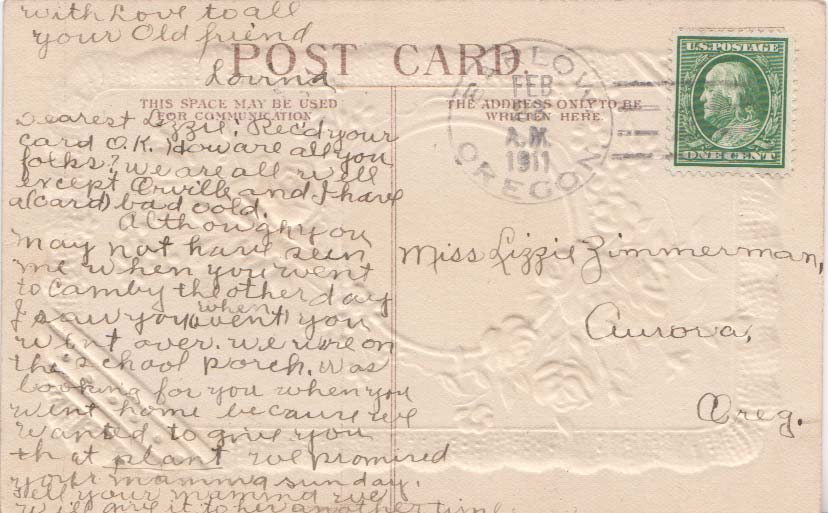 with Love to all
your Old friend
Lovina
POST CARD.
THIS SPACE MAY BE USED
FOR COMMUNICATION
THE ADDRESS ONLY TO BE
WRITTEN HERE.
Dearest Lizzie: Rec'd your
card O.K. How are all you
folks? We are all well
except Orville and I have
a (card) bad cold.
Although you
may not have seen
me when you went
to Camby the other day
I saw you (went) when you
went over. we were on
the school porch. Was
looking for you when you
went home because we
wanted to give you
that plant we promised
your mamma sunday.
Tell your mamma we
will give it to her another time
BARLOW
FEB
A.M.
1911
OREGON
U.S. POSTAGE
ONE CENT
Miss Lizzie Zimmerman,
Aurora,
Oreg.